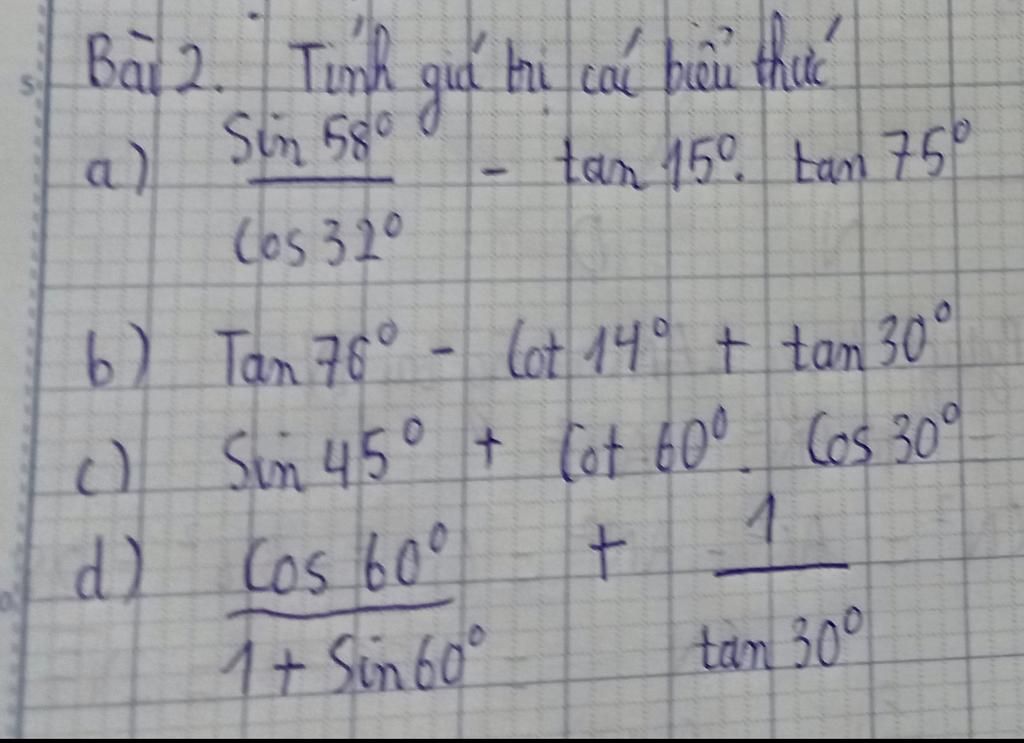 Bài 2. Tính giá trị các biểu thức
a) Sin 58° / Cos 32° - tan 15°. tan 75°
b) Tan 76° - Cot 14° + tan 30°
c) Sin 45° + Cot 60°. Cos 30°
d) Cos 60° / 1 + Sin 60° + 1 / tan 30°